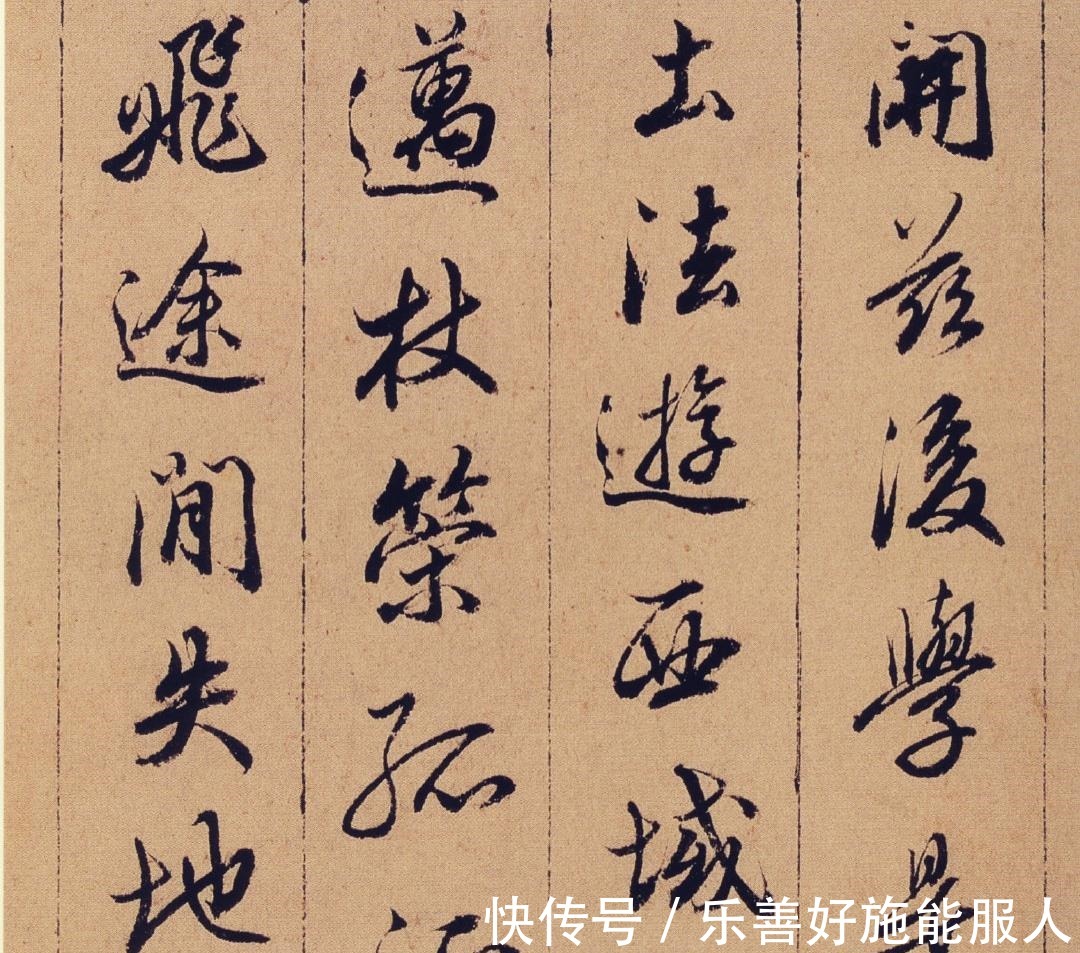 開茲後學是
土法遊西域
邁杖策孤
飛途間失地
快传号 / 乐善好施能服人